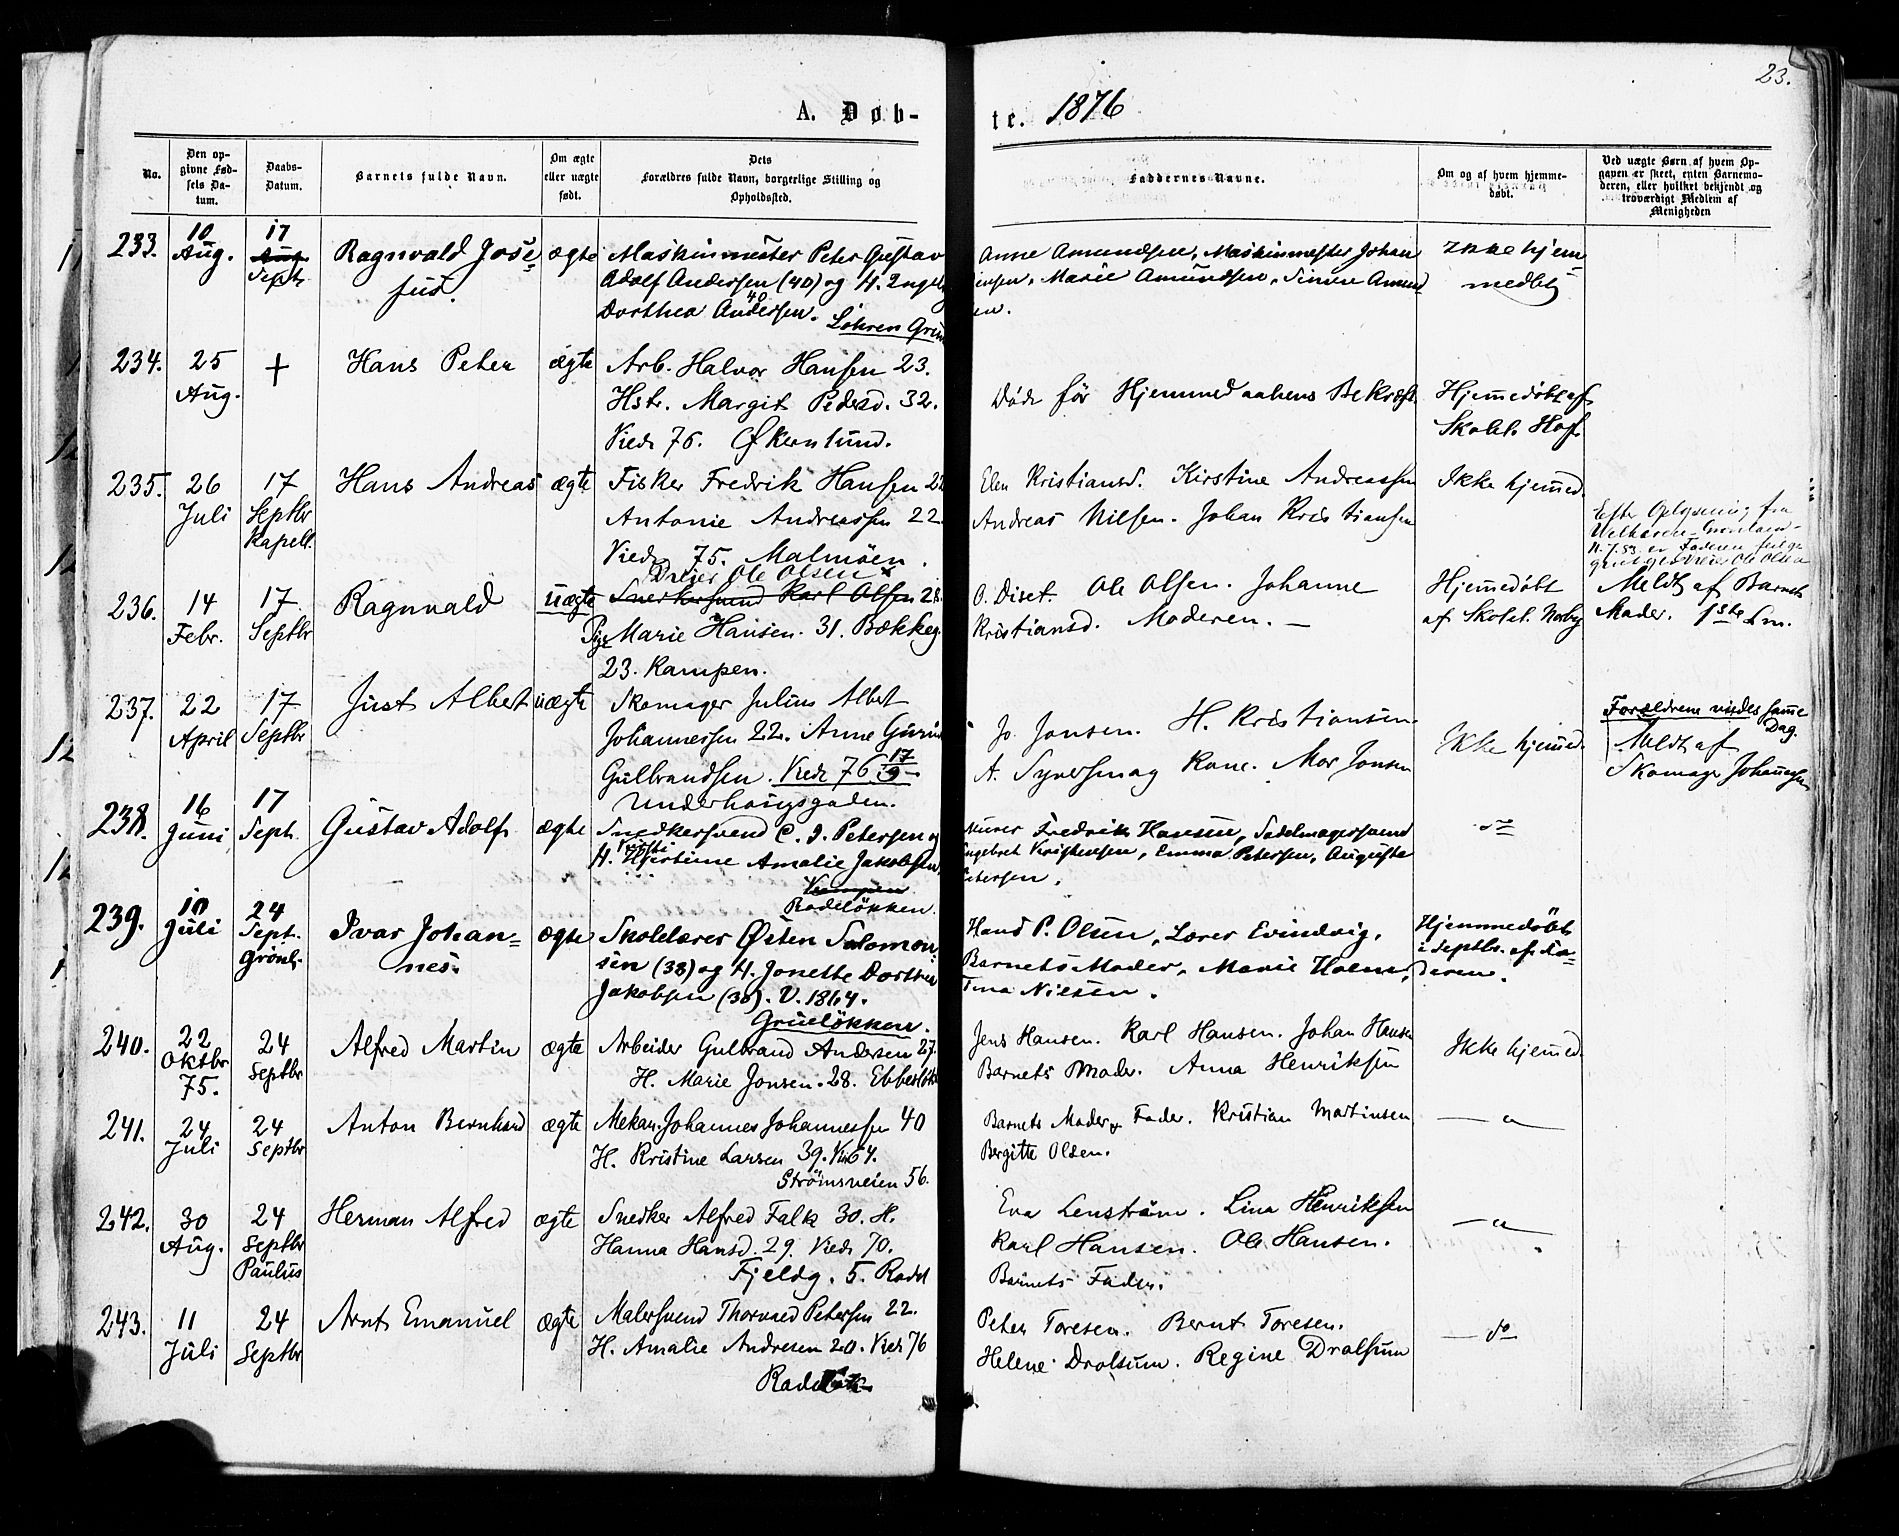 23.
A. Døb-
te. 1876
No.
Den op-
givne Fød-
sels Da-
tum.
Daabs-
Datum.
Barnets fulde Navn.
Om ægte
eller uægte
født.
Dets
Forældres fulde Navn, borgerlige Stilling og
Opholdssted.
Faddernes Navne.
Om og af hvem hjemme-
døbt.
Ved uægte Børn af hvem Op-
gaven er skeet, enten Barnemo-
deren, eller hvilket bekjendt og
troværdigt Medlem af
Menigheden
233.
10
Aug.
17
Aug.
Sept.
Ragnvald Jose
fus.
ægte
Maskinmester Peter Gustav
Adolf Andersen (40) og H.
Dorthea Andersen. 40
Anne Amundsen, Maskinmester Johan
Jensen, Marie Amundsen,
en.
Ikke hjem
medbt
234.
25
Aug.
+
Hans Peter
ægte
Arb. Halvor Hansen 23.
Hstr. Margit Pedersd. 32.
Viede 76.
Døde før Hjemmedaabens Bekræft.
Hjemmedøbt af
Skolel. Hof
235.
26
Juli
17
Septbr
Kapell.
Hans Andreas
ægte
Fisker Fredrik Hansen 22
Antonie Andreassen 22.
Viede 75. Malmøen.
Elen Kristiansd. Kirstine Andreassen
Andreas Nilsen. Johan Kristiansen
Ikke hjemmed.
236.
14
Febr.
17
Septbr
Ragnvald
uægte
Dreier Ole Olsen
Snerkersvend Karl Olsen 28.
Pige Marie Hansen. 31. Bækkeg.
23. Kampen.
O. Diset. Ole Olsen. Johanne
Kristiansd. Moderen. —
Hjemmedøbt
af Skolel. Norby
Efter Oplysning fra
Meldt af Barnets
Moder. 1ste Lm.
237.
22
April
17
Septbr
Just Albert
uægte
Skomager Julius Albert
Johannessen 22. Anne
Gulbrandsen. Viede 76 17/9
Underhaugsgaden.
Jo. Jonsen. H. Kristiansen
A. Syversen og Kone. Mor Jonsen
Ikke hjemmed.
Forældrene viedes samme
Dag.
Meldt af
Skomager Johannessen
238.
16
Juni
17
Sept.
Gustav Adolf
ægte
Snedkersvend C. J. Petersen og
H. Amalie Jakobsen,
Kampen
Rodeløkken.
Murer Fredrik Hansen, Sadelmagersvend
Engebret Kristensen, Emma Petersen, Augusta
Petersen.
do
239.
10
Juli
24
Sept.
Grønl.
Ivar Johan=
nes.
ægte
Skolelærer Østen Salomon
sen (38) og H. Jonette Dorthea
Jakobsen (38). V. 1864.
Grueløkken.
Hans P. Olsen, Lærer Evindvig,
Barnets Moder, Marie Holm,
Tina Nilsen.
Hjemmedøbt
i Septbr. af Fa=
deren.
240.
22
Oktbr
75.
24
Septbr
Alfred Martin
ægte
Arbeider Gulbrand Andersen 27.
H. Marie Jonsen. 28.
Jens Hansen. Karl Hansen. Johan Hansen
Barnets Moder. Anna Henriksen
Ikke hjemmed.
241.
24
Juli
24
Septbr
Anton Bernhard
ægte
Mekan. Johannes Johannessen 40
H. Kristine Larsen 39. Vied 64.
Strømsveien 56.
Barnets Moder & Fader. Kristian Martinsen
Bergitte Olsen.
— " —
242.
30
Aug.
24
Septbr
Paulus
Herman Alfred
ægte
Snedker Alfred Falk 30. H.
Hanna Hansd. 29. Viede 70.
Fjeldg. 5. Rodel
Eva Lenström. Lina Henriksen
Karl Hansen. Ole Hansen.
Barnets Fader.
— " —
243.
11
Juli
24
Septbr
Arnt Emanuel
ægte
Malersvend Thorvald Petersen 22.
H. Amalie Andresen 20. Vied 76
Peter Toresen. Bernt Toresen.
Helene Drolsum. Regine Drolsum
— do